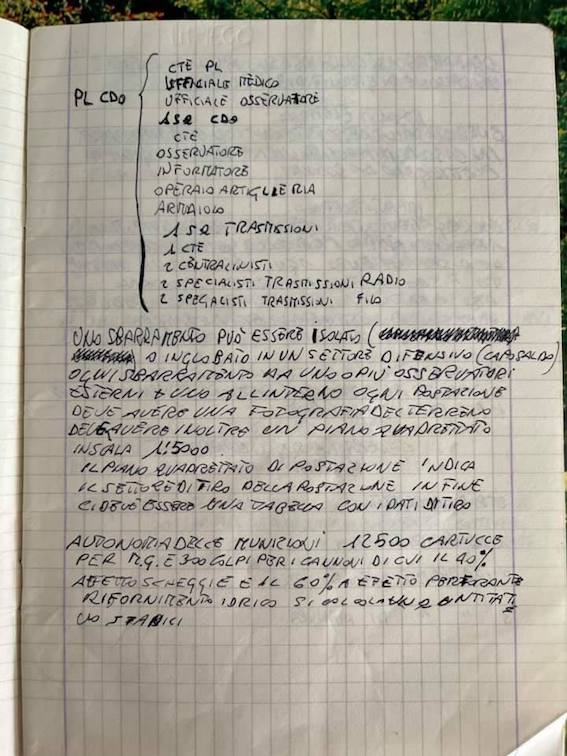 PL CDO
CTE PL
UFFICIALE MEDICO
UFFICIALE OSSERVATORE
1 SQ CDO
CTE
OSSERVATORE
INFORMATORE
OPERAIO ARTIGLIERIA
ARMAIOLO
1 SQ TRASMISSIONI
1 CTE
2 CENTRALINISTI
2 SPECIALISTI TRASMISSIONI RADIO
2 SPECIALISTI TRASMISSIONI FILO
UNO SBARRAMENTO PUÒ ESSERE ISOLATO (
O INGLOBATO IN UN SETTORE DIFENSIVO (CAPOSALDO)
OGNI SBARRAMENTO HA UNO O PIÙ OSSERVATORI
ESTERNI + UNO ALL INTERNO OGNI POSTAZIONE
DEVE AVERE UNA FOTOGRAFIA DEL TERRENO
DEVE AVERE INOLTRE UN PIANO QUADRETTATO
IN SCALA 1:5000.
IL PIANO QUADRETTATO DI POSTAZIONE INDICA
IL SETTORE DI TIRO DELLA POSTAZIONE IN FINE
CI DEVE ESSERE UNA TABELLA CON I DATI DI TIRO
AUTONOMIA DELLE MUNIZIONI 12500 CARTUCCE
PER M.G. E 300 COLPI PER I CANNONI DI CUI IL 40%
A EFFETTO SCHEGGIE E IL 60% A EFETTO PERFORANTE
RIFORNIMENTO IDRICO SI CALCOLA